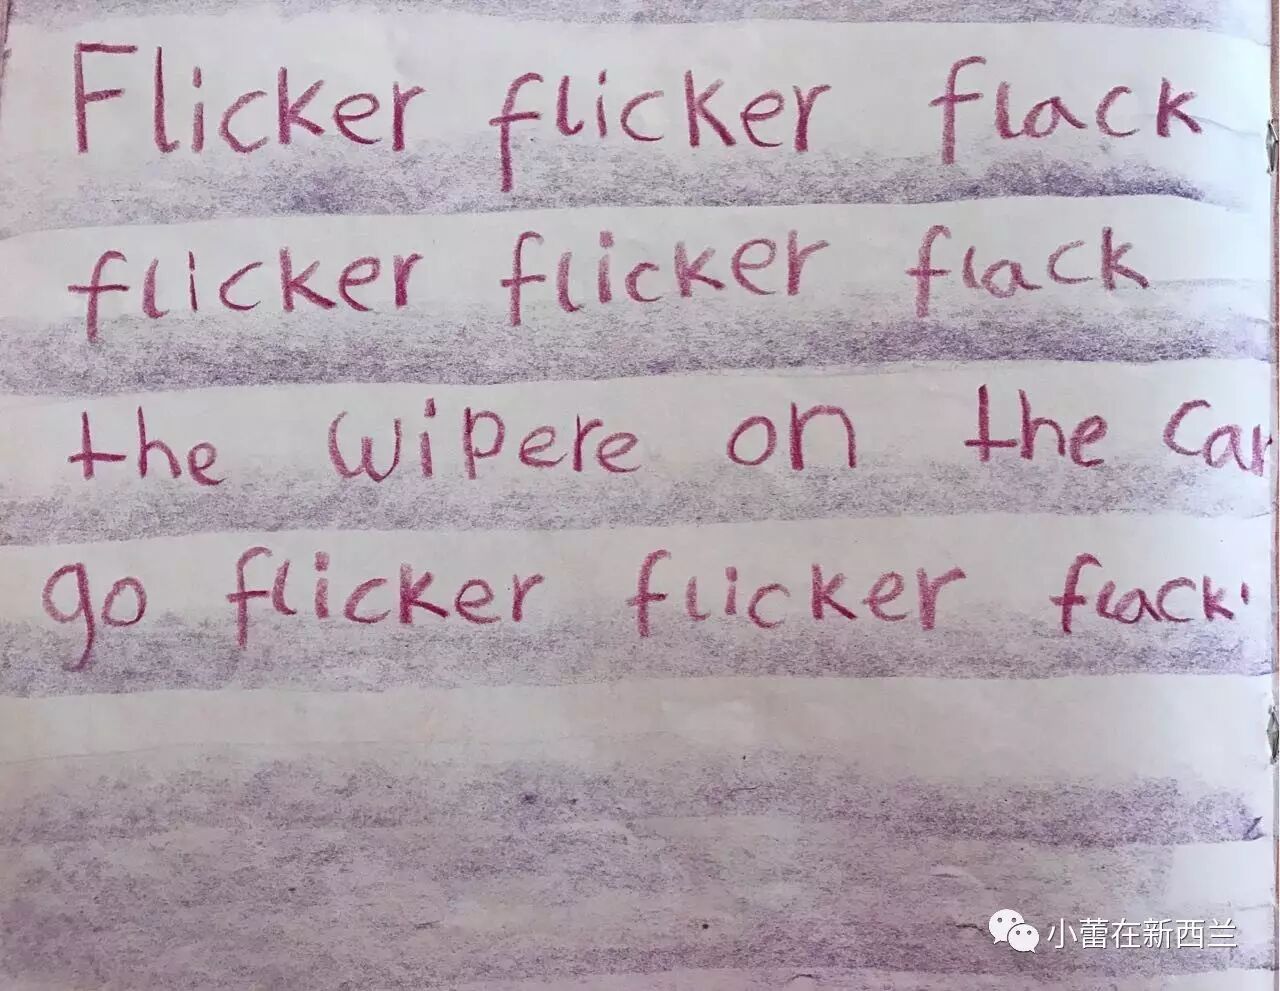 Flicker flicker flack
flicker flicker flack
the wipere on the car
go flicker flicker flack'
小蕾在新西兰